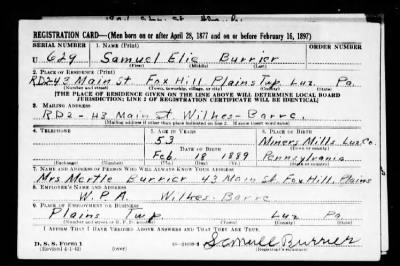 REGISTRATION CARD—(Men born on or after April 28, 1877 and on or before February 16, 1897)
SERIAL NUMBER 1. NAME (Print) ORDER NUMBER
U 629 Samuel Elie Burrier
(First) (Middle) (Last)
2. PLACE OF RESIDENCE (Print)
RD2 43 Main St. Fox Hill Plains Twp. Luz. Pa.
(Number and street) (Town, township, village, or city) (County) (State)
[THE PLACE OF RESIDENCE GIVEN ON THE LINE ABOVE WILL DETERMINE LOCAL BOARD
JURISDICTION; LINE 2 OF REGISTRATION CERTIFICATE WILL BE IDENTICAL]
3. MAILING ADDRESS
RD2 - 43 Main St. Wilkes-Barre.
[Mailing address if other than place indicated on line 2. If same insert word same]
4. TELEPHONE 5. AGE IN YEARS 6. PLACE OF BIRTH
53 Miners Mills Luz Co.
DATE OF BIRTH (Town or county)
Feb. 18 1889 Pennsylvania
(Exchange) (Number) (Mo.) (Day) (Yr.) (State or country)
7. NAME AND ADDRESS OF PERSON WHO WILL ALWAYS KNOW YOUR ADDRESS
Mrs Mertle Burrier 43 Main St. Fox Hill, Plains
8. EMPLOYER'S NAME AND ADDRESS
W. P. A. Wilkes-Barre
9. PLACE OF EMPLOYMENT OR BUSINESS
Plains Twp. Luz Pa.
(Number and street or R. F. D. number) (Town) (County) (State)
I AFFIRM THAT I HAVE VERIFIED ABOVE ANSWERS AND THAT THEY ARE TRUE.
D. S. S. Form 1
(Revised 4-1-42) (over) Samuel Burrier